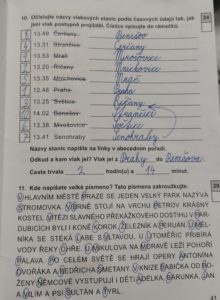 10. Očíslujte názvy vlakových stanic podle časových údajů tak, jak jimi vlak postupně projíždí. Číslice vpisujte do rámečků.
24
13.49 Čerčany Benešov
13.31 Strančice Čerčany
13.53 Mrač Mirošovice
13.27 Říčany Mnichovice
13.36 Mnichovice Mrač
12.48 Praha Praha
13.25 Světice Říčany
13.58 Benešov Strančice
13.38 Mirošovice Světice
13.41 Senohraby Senohraby
Stanice napište na linky v abecedním pořadí.
Odkud a kam vlak jel? Vlak jel z Prahy do Benešova.
Cesta trvala hodin(u) a 14 minut.
11. Kde napíšete velké písmeno? Tato písmena zakroužkujte.
V HLAVNÍM MĚSTĚ PRAZE SE JEDEN VELKÝ PARK NAZÝVÁ
STROMOVKA. V BRNĚ STOJÍ NA VRCHU PETROV KRÁSNÝ
KOSTEL. VÍTĚZI SLAVNÉHO PŘEKÁŽKOVÉHO DOSTIHU V PAR-
DUBICÍCH BYLI I KONĚ KOROK, ŽELEZNÍK A PERUÁN. U MĚL-
NÍKA SE STÉKÁ LABE S VLTAVOU. U LITOMĚŘIC PŘIBÍRÁ
VODY ŘEKY OHŘE. U MIKULOVA NA MORAVĚ LEŽÍ POHOŘÍ
PÁLAVA. PO CELÉM SVĚTĚ SE HRAJÍ OPERY ANTONÍNA
DVOŘÁKA A BEDŘICHA SMETANY. V KNIZE BABIČKA OD BO-
ŽENY NĚMCOVÉ VYSTUPUJÍ I DĚTI ADÉLKA, BARUNKA, JAN
A VILÍM A PSI SULTÁN A TYRL.